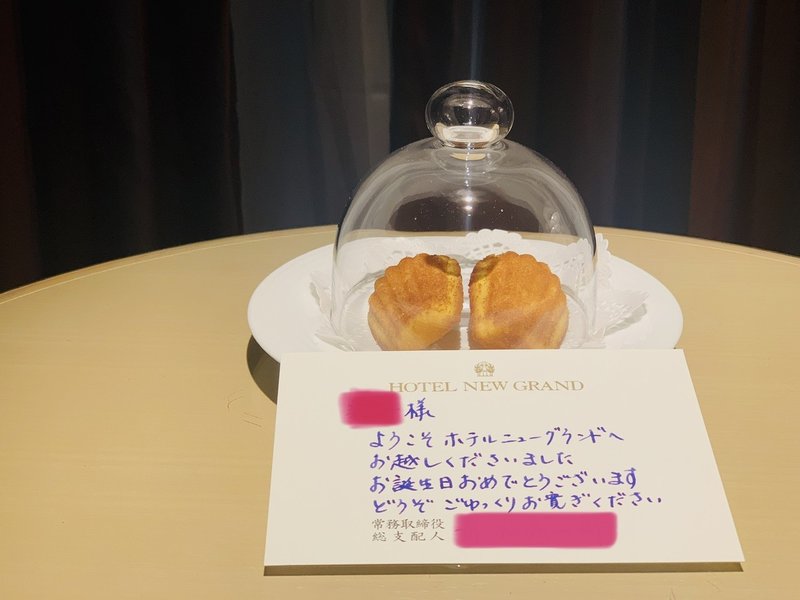 HOTEL NEW GRAND
様
ようこそ ホテルニューグランドへ
お越しくださいました
お誕生日おめでとうございます
どうぞ ごゆっくりお寛ぎください
常務取締役
総支配人